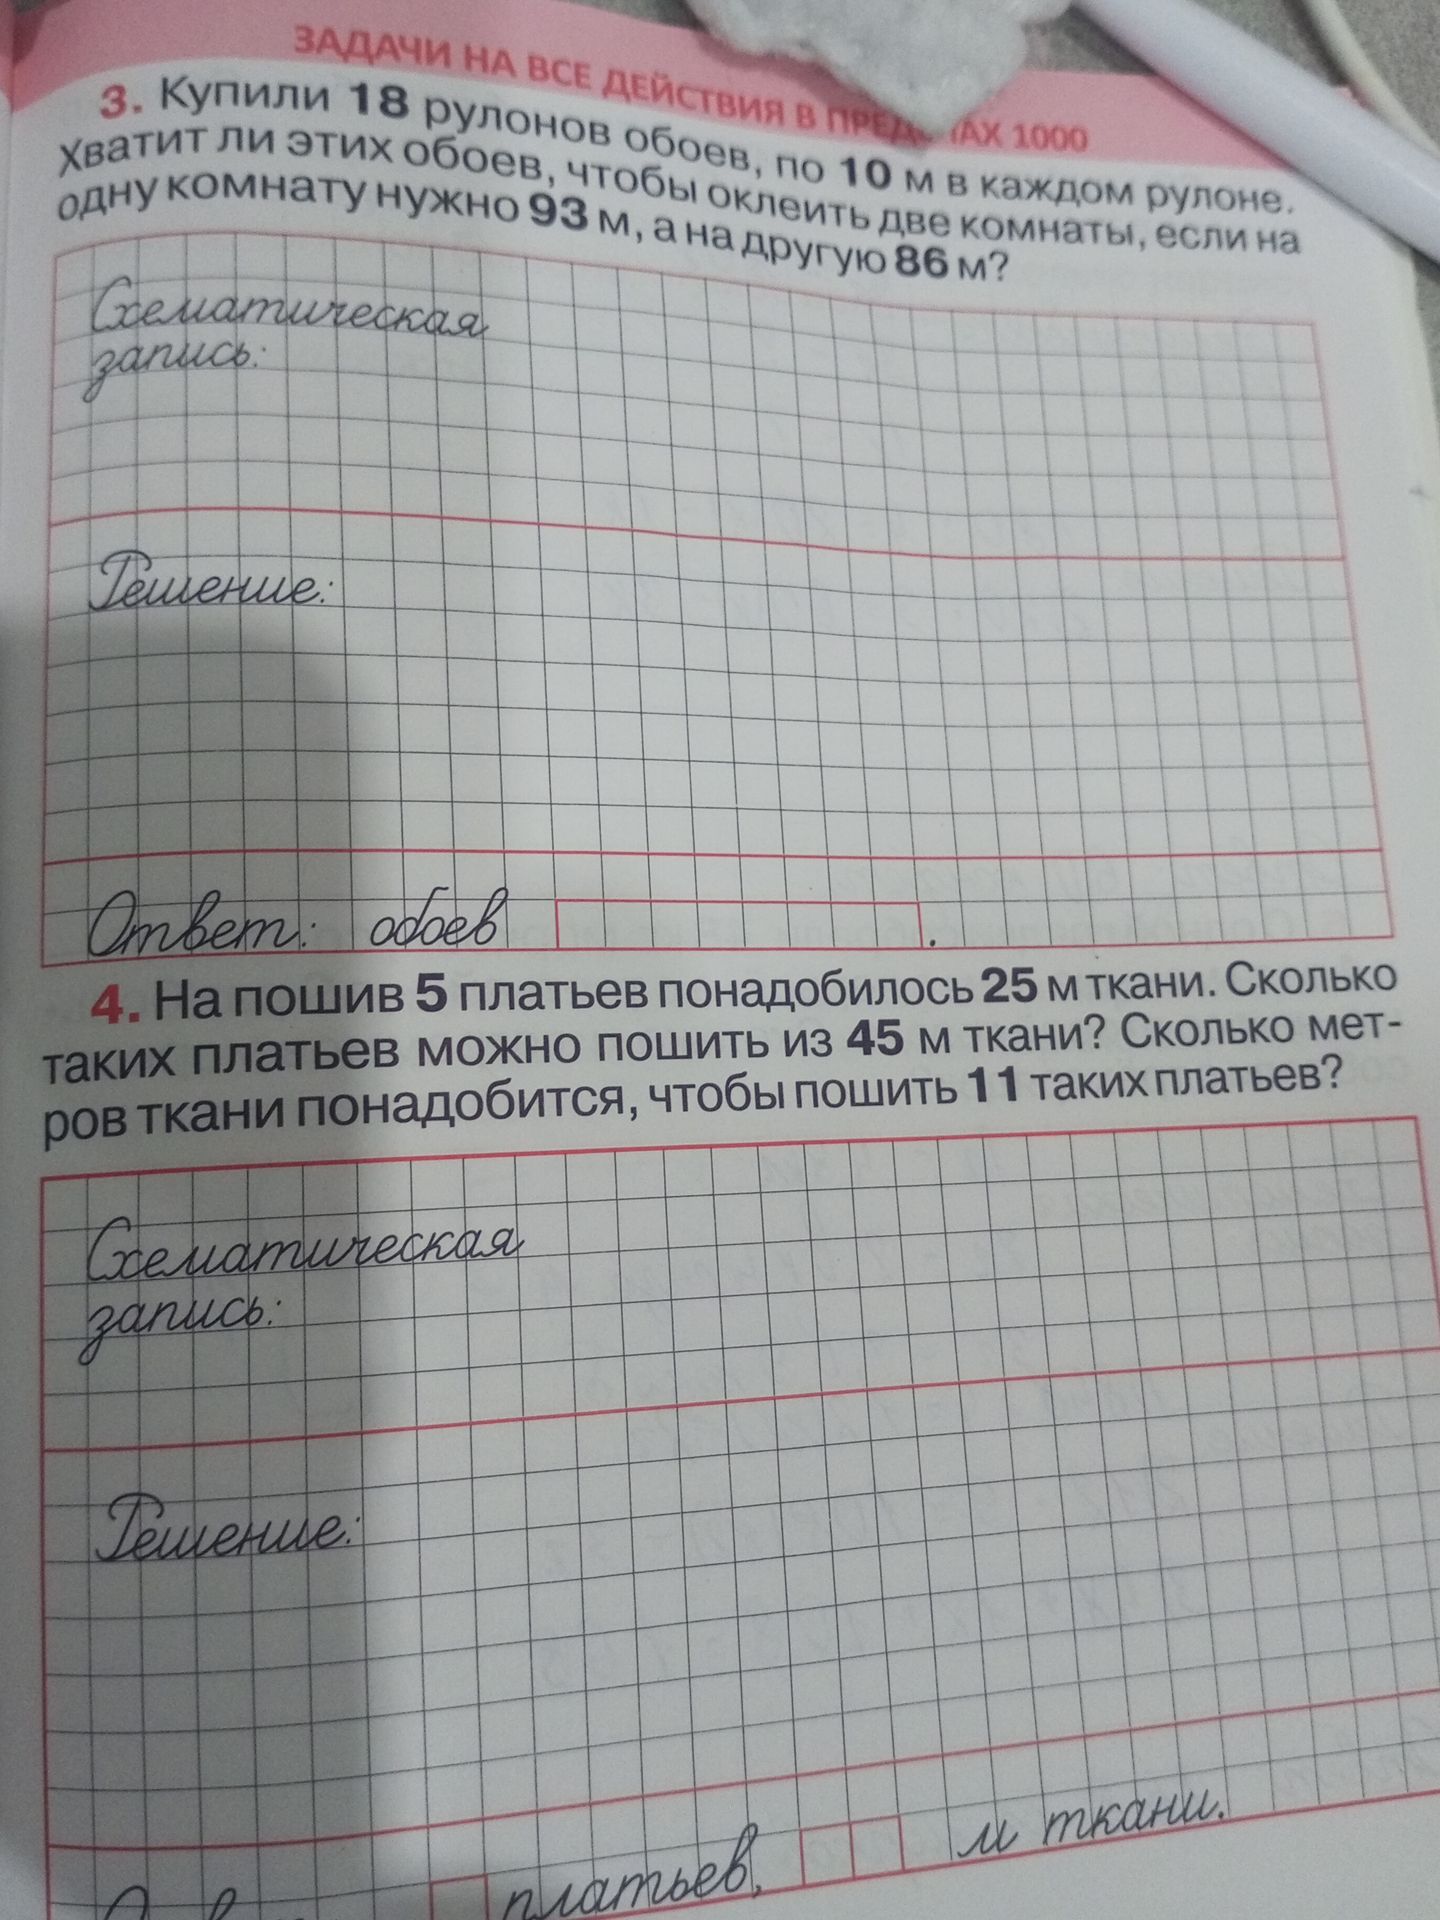 ЗАДАЧИ НА ВСЕ ДЕЙСТВИЯ В 1000
3. Купили 18 рулонов обоев, по 10 м в каждом рулоне.
Хватит ли этих обоев, чтобы оклеить две комнаты, если на
одну комнату нужно 93 м, а на другую 86 м?
Схематическая
запись:
Решение:
Ответ: обоев .
4. На пошив 5 платьев понадобилось 25 м ткани. Сколько
таких платьев можно пошить из 45 м ткани? Сколько мет-
ров ткани понадобится, чтобы пошить 11 таких платьев?
Схематическая
запись:
Решение:
платьев, м ткани.